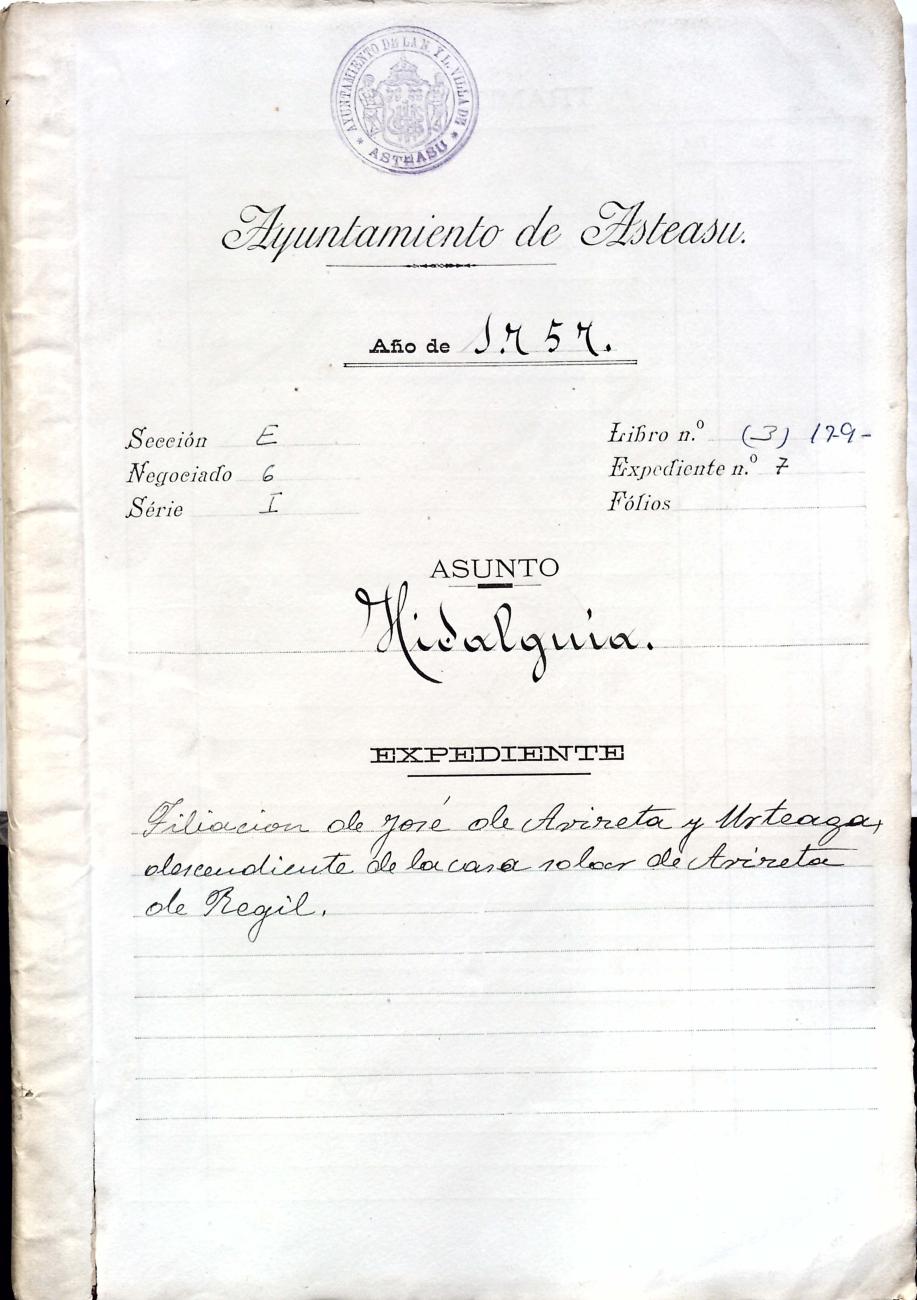 AYUNTAMIENTO DE LA N. Y L. VILLA DE
* ASTEASU *
Ayuntamiento de Asteasu.
Año de 1.757.
Sección E
Negociado 6
Série I
Libro n.º (3) 179-
Expediente n.º 7
Fólios
ASUNTO
Hidalguia.
EXPEDIENTE
Filiacion de José de Avireta y Urteaga,
descendiente de la casa solar de Avireta
de Regil.